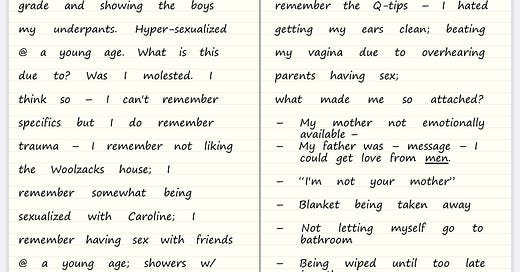 grade and showing the boys
my underpants. Hyper-sexualized
@ a young age. What is this
due to? Was I molested. I
think so – I can't remember
specifics but I do remember
trauma – I remember not liking
the Woolzacks house; I
remember somewhat being
sexualized with Caroline; I
remember having sex with friends
@ a young age; showers w/
remember the Q-tips – I hated
getting my ears clean; beating
my vagina due to overhearing
parents having sex;
what made me so attached?
– My mother not emotionally
available –
– My father was – message – I
could get love from men.
– “I'm not your mother”
– Blanket being taken away
– Not letting myself go to
bathroom
– Being wiped until too late